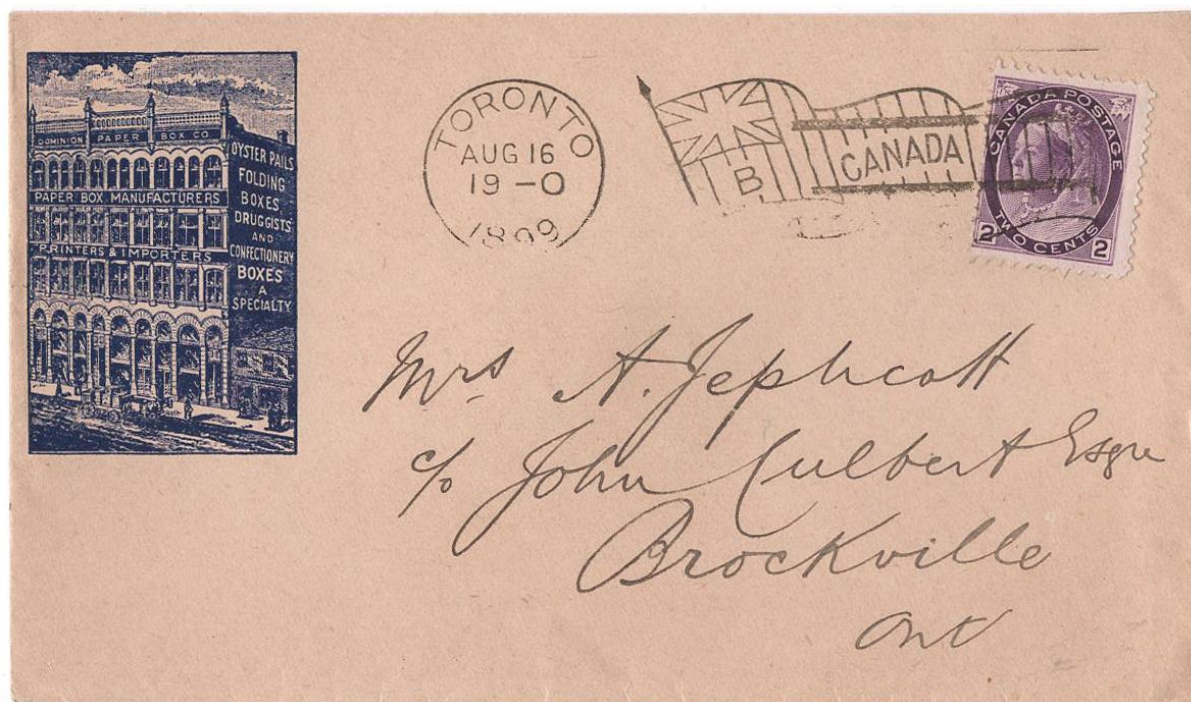 DOMINION PAPER BOX CO
PAPER BOX MANUFACTURERS
PRINTERS & IMPORTERS
OYSTER PAILS
FOLDING
BOXES
DRUGGISTS
AND
CONFECTIONERY
BOXES
A
SPECIALTY
TORONTO
AUG 16
19-0
1899
B
CANADA
CANADA POSTAGE
2 TWO CENTS 2
Mrs A. Jephcott
c/o John Culbert Esqre
Brockville
Ont